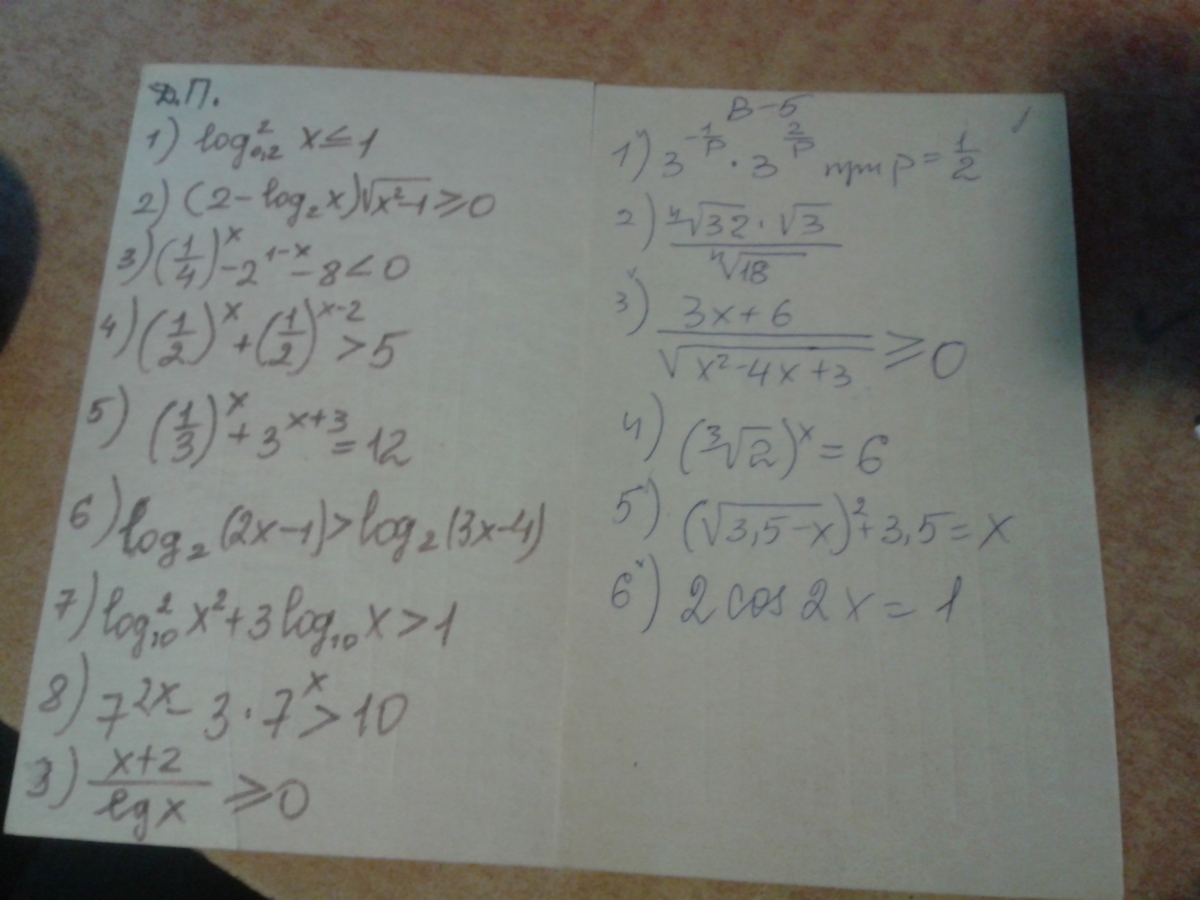 Д.П.
1) log²₀,₂ x ≤ 1
2) (2 - log₂x)√(x²-1) ≥ 0
3) (1/4)ˣ - 2¹⁻ˣ - 8 < 0
4) (1/2)ˣ + (1/2)ˣ⁻² > 5
5) (1/3)ˣ + 3ˣ⁺³ = 12
6) log₂(2x-1) > log₂(3x-4)
7) log²₁₀ x² + 3log₁₀ x > 1
8) 7²ˣ - 3·7ˣ > 10
3) (x+2)/(lg x) ≥ 0
В-5
1) 3^(-1/p) · 3^(2/p) при p = 1/2
2) (⁴√32 · √3)/(⁴√18)
3) (3x+6)/√(x²-4x+3) ≥ 0
4) (³√2)ˣ = 6
5) (√(3,5-x))² + 3,5 = x
6) 2 cos 2x = 1